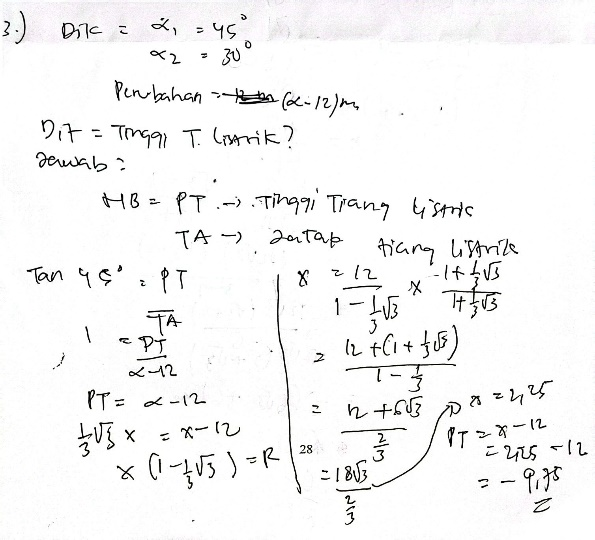 3.) Dik = α₁ = 45°
α₂ = 30°
Perubahan = (α-12)m
Dit = Tinggi T. Listrik?
Jawab :
MB = PT → Tinggi Tiang Listrik
TA → Jarak tiang Listrik
Tan 45° = PT
TA
1 = PT
α-12
PT = α-12
1/3√3 x = x-12
x (1-1/3√3) = 12
x = 12 / 1-1/3√3 × 1+1/3√3 / 1+1/3√3
= 12+(1+1/3√3) / 1-1/3
= 12+6√3 / 2/3
28
= 18√3 / 2/3
x = 2,25
PT = x-12
= 2,25-12
= -9,75